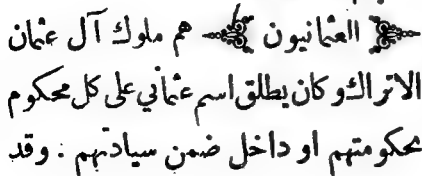 العثمانيون هم ملوك آل عثمان
الاتراك وكان يطلق اسم عثماني على كل محكوم
بحكومتهم او داخل ضمن سيادتهم . وقد